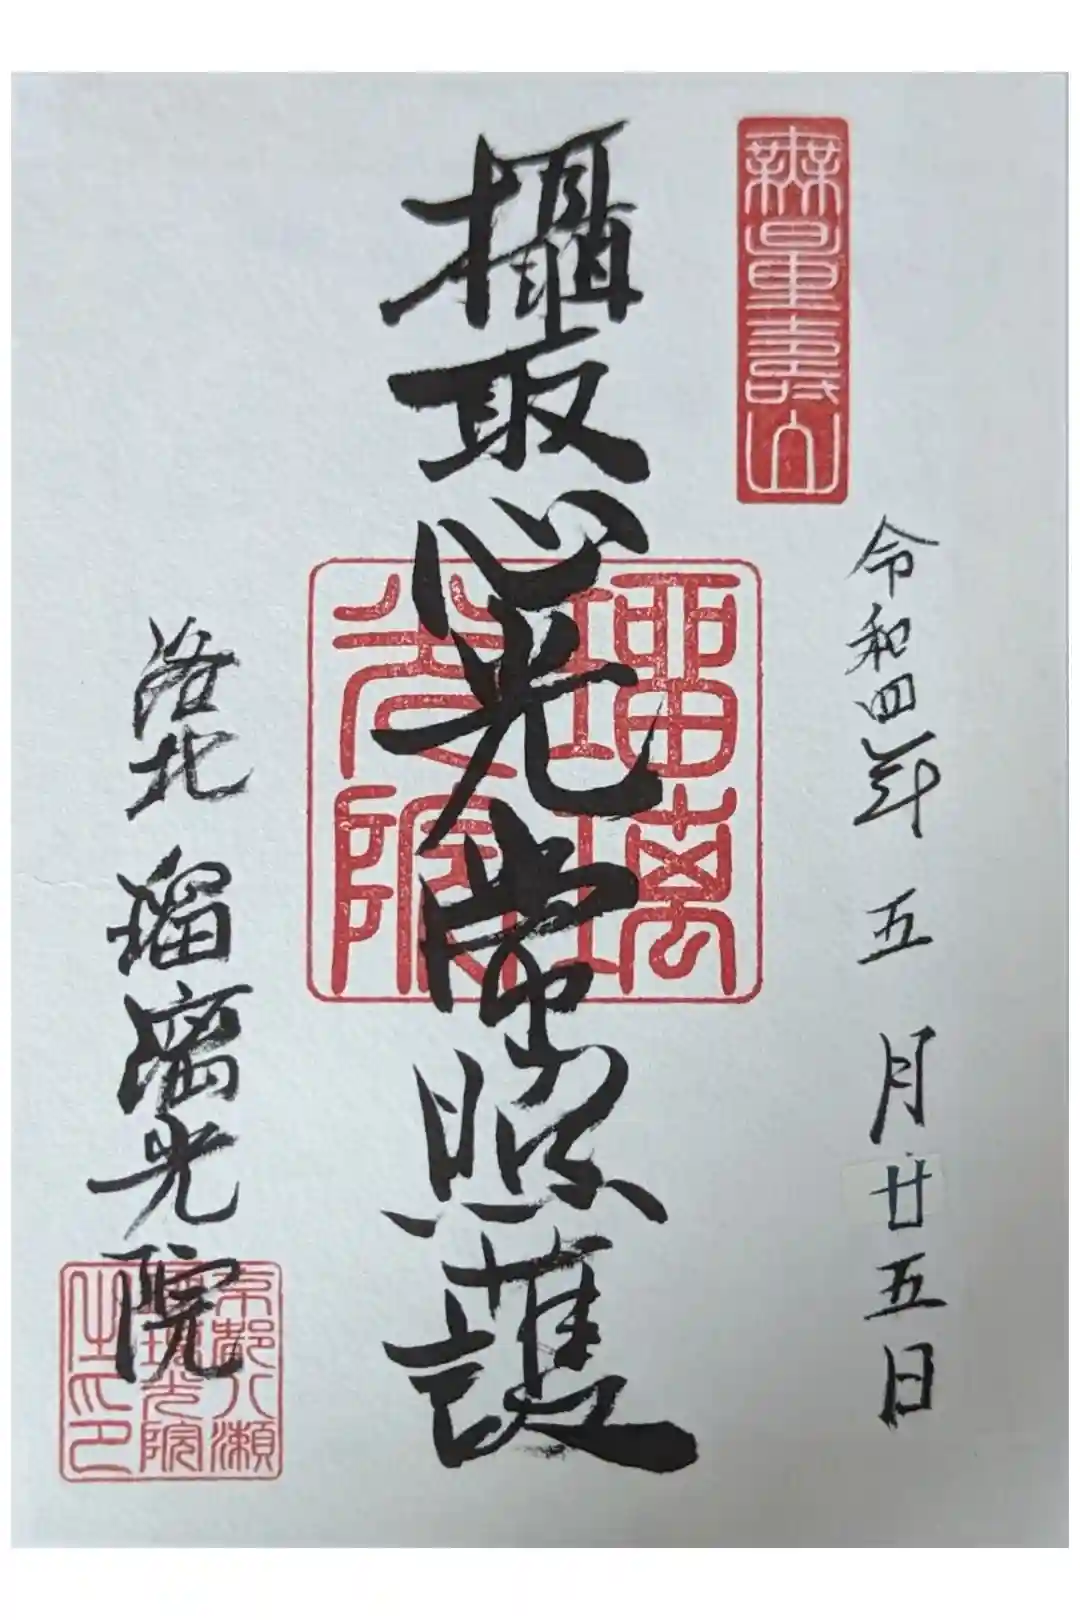 無量壽山
令和四年 五月廿五日
攝取心光常照護
瑠璃
光院
洛北 瑠璃光院
京都八瀬
瑠璃光院
住印